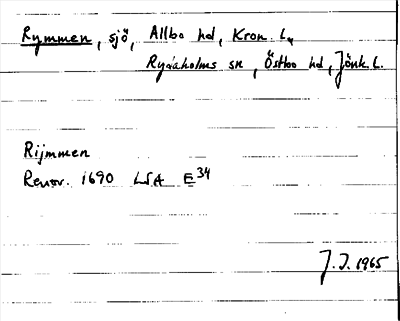 Rymmen, sjö, Allbo hd, Kron. L.,
Rydaholms sn, Östbo hd, Jönk. L.
Rijmmen
Renov. 1690 LSA E34
J.I. 1965